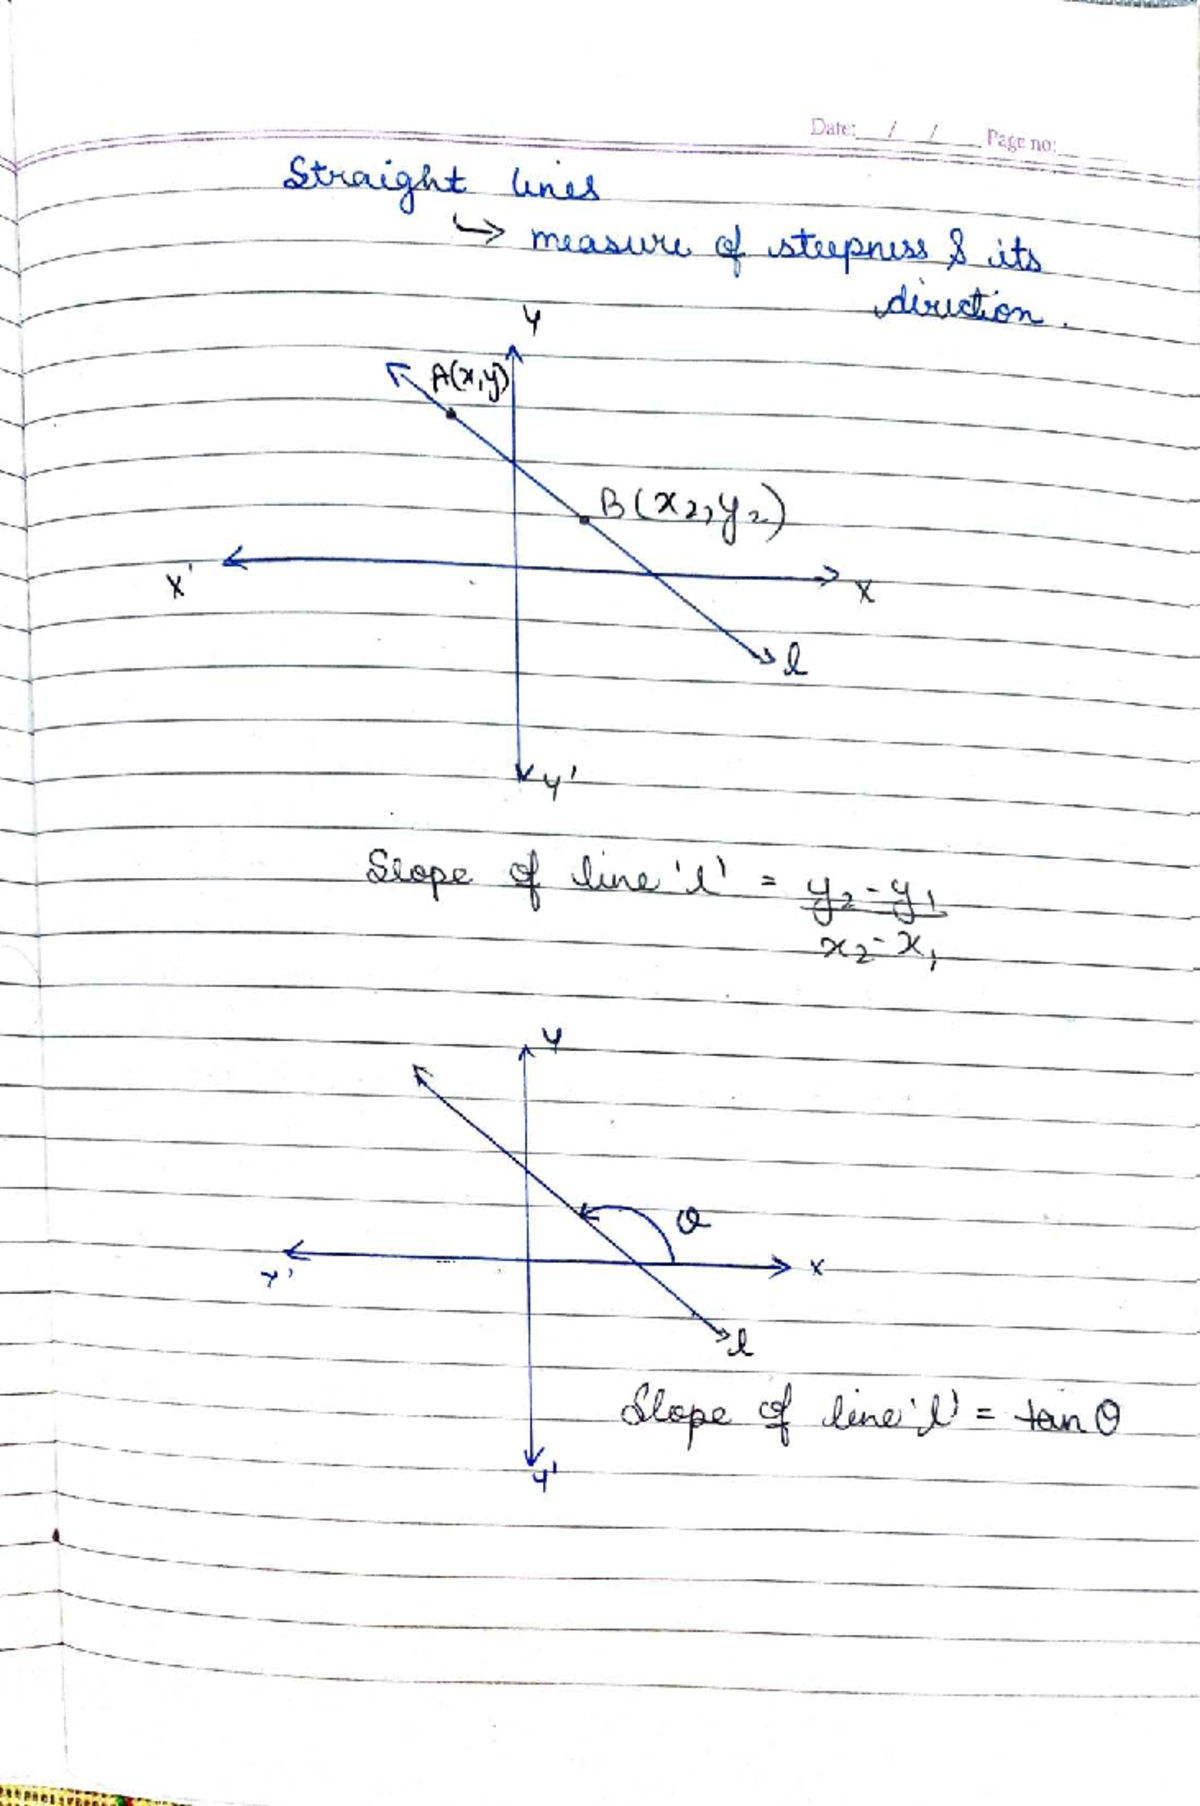 Date: / / Page no:
Straight lines
↳ measure of steepness & its
direction.
Y
A(x,y)
B(x₂,y₂)
X' X
l
Y'
Slope of line 'l' = y₂-y₁
x₂-x₁
Y
θ
X' X
l
Slope of line 'l' = tan θ
Y'